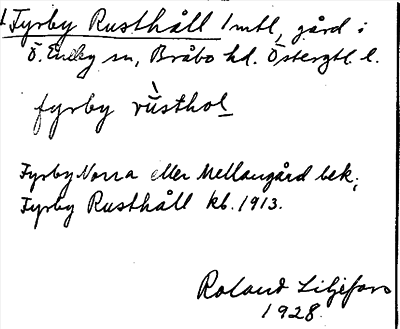 Fyrby Rusthåll 1 mtl, gård i
Ö. Eneby sn, Bråbo hd. Östergtl. l.
fyrby rùsthol
Fyrby Norra eller Mellangård bek,
Fyrby Rusthåll kb. 1913.
Roland Liljefors
1928.